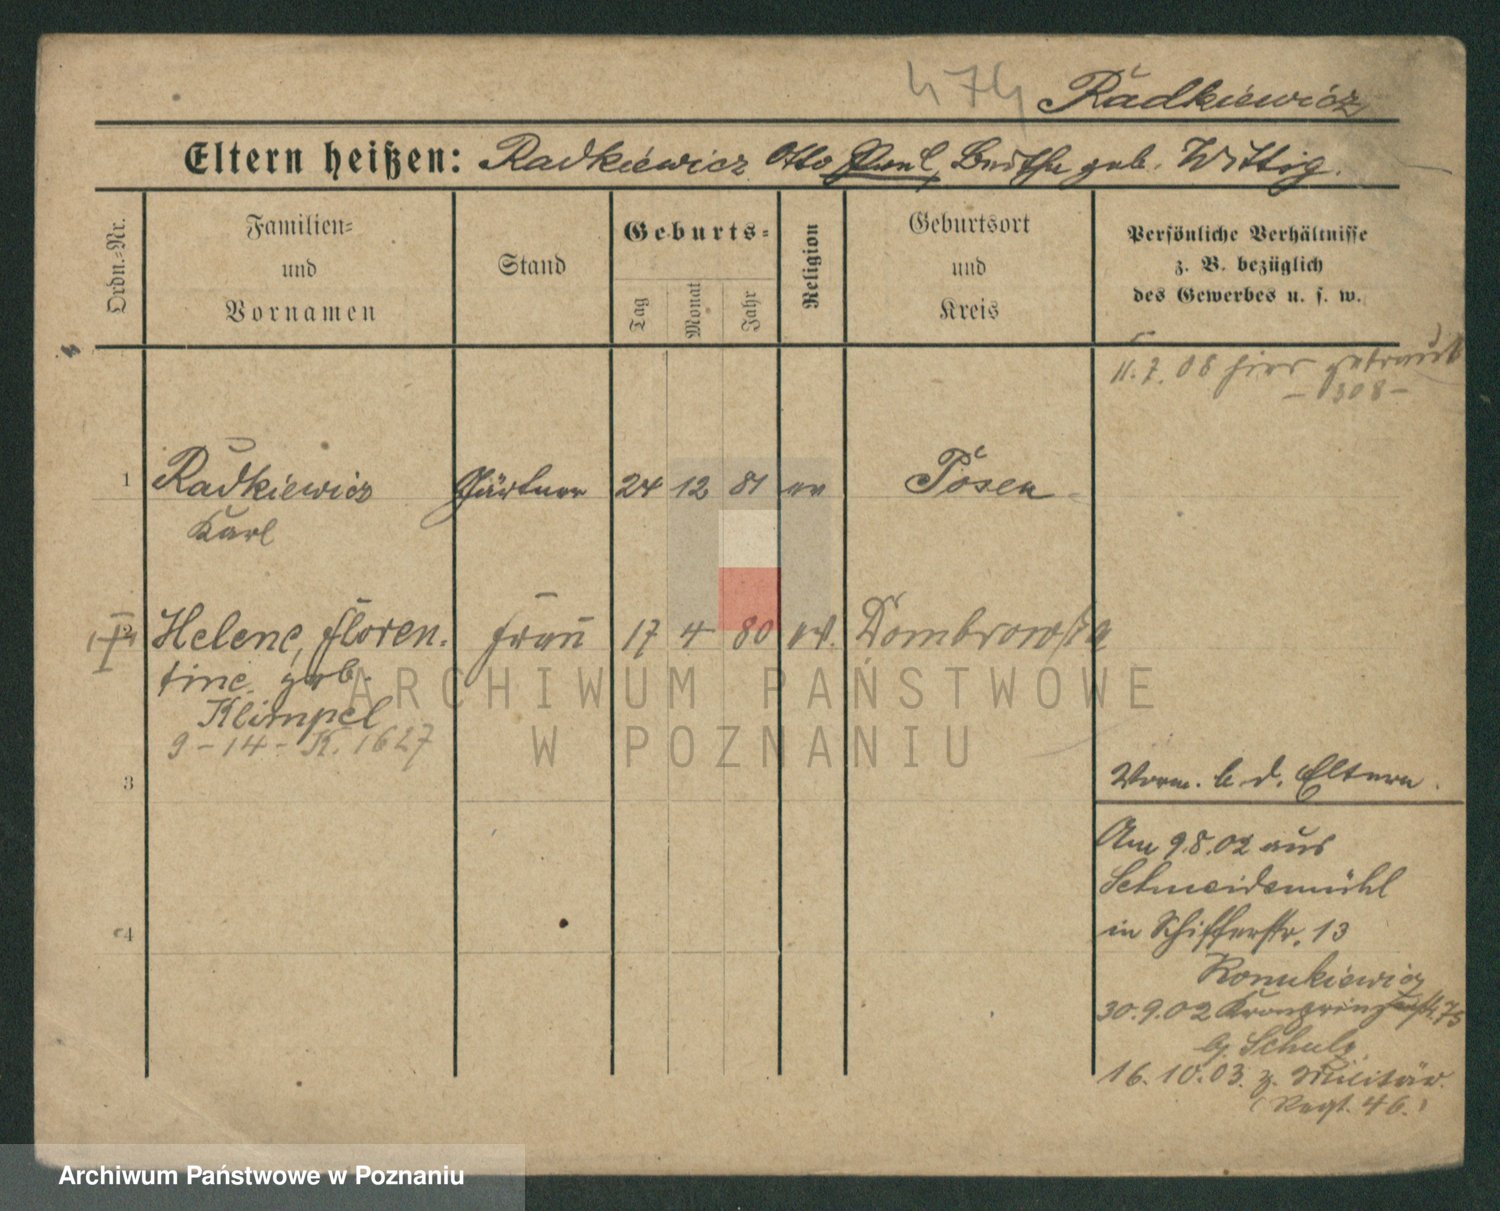 Radkiewicz
Eltern heißen: Radkiewicz Otto Paul, Berthe geb. Wittig.
Ordn.=Nr.
Familien=
und
Vornamen
Stand
Geburts=
Tag
Monat
Jahr
Religion
Geburtsort
und
Kreis
Persönliche Verhältnisse
z. B. bezüglich
des Gewerbes u. s. w.
11. 7. 08 hier getraut
- 308 -
1 Radkiewicz Gärtner 24 12 81 ev Posen
Karl
2 Helene, Floren- Frau 17 4 80 ev. Dombrowka
tine geb.
Klimpel
9 - 14 - K. 1627
ARCHIWUM PAŃSTWOWE
W POZNANIU
3
Vorm. b. d. Eltern.
Am 9.8.02 aus
Schneidemühl
4
in Schifferstr. 13
30.9.02 Kronprinzenstr. 75
b. Schulz
16.10.03. z. Militär.
(Regt. 46.)
Archiwum Państwowe w Poznaniu